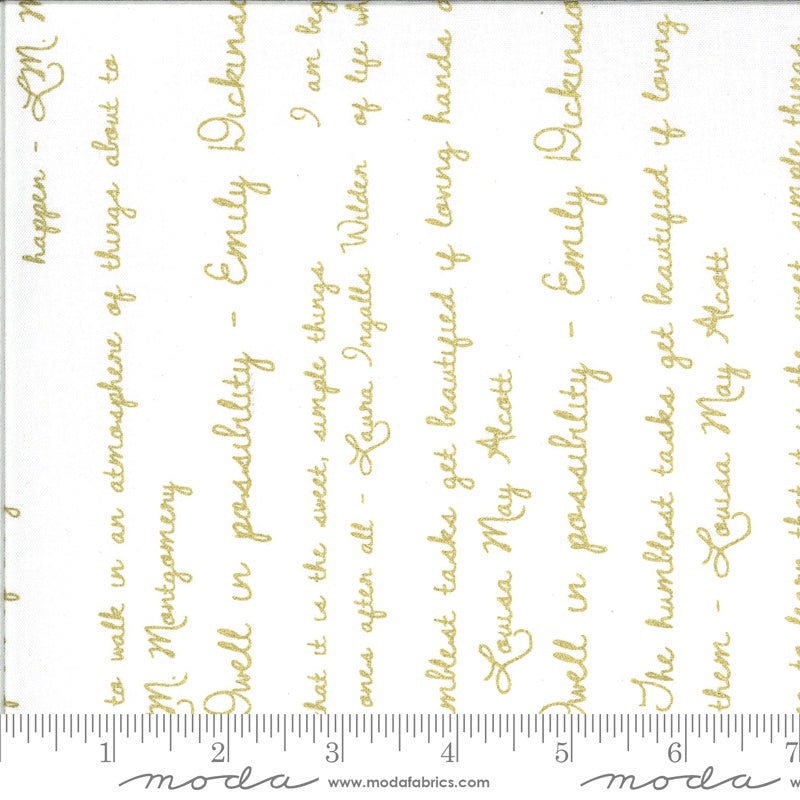 happen - L.M.
to walk in an atmosphere of things about to
M. Montgomery
Dwell in possibility - Emily Dickinso
I am beg
hat it is the sweet, simple things
of life wh
ones after all - Laura Ingalls Wilder
mblest tasks get beautified if loving hands
Louisa May Alcott
Dwell in possibility - Emily Dickinso
The humblest tasks get beautified if loving
them - Louisa May Alcott
to learn that it is the sweet, simple things
1 2 3 4 5 6 7
moda www.modafabrics.com moda w